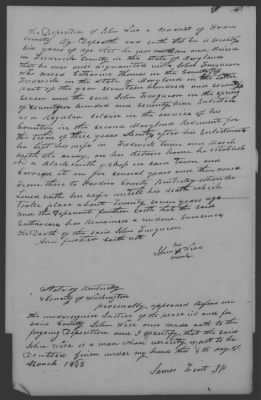 The Deposition of John Vice a resident of Hardin
County Ky Deposeth and saith that he is seventy
six years of age that he was born and Raised
in Frederick County in the State of Maryland
that he was well acquainted with John Ferguson
who married Catharine Thomas in the County of
Frederick in the State of Maryland in the latter
part of the year seventeen hundred and seventy
seven and the said John Ferguson in the Spring
of seventeen hundred and seventy nine Enlisted
as a Regular soldier in the services of his
Country in the second Maryland Regiment for
the term of three years shortly after his Enlistment
he left his wife in Frederick Town and march
with the army, on his return home he establish
a Black smith shop in said Town and
carried it on for several years and then moved
from there to Hardin County Kentucky where he
lived with his wife untill his death which
took place about Twenty seven years ago
and this deponent further saith that the said
Catharine has remained a widow since
the Death of the said John Ferguson
And further saith not
John his X Vice
mark
State of Kentucky
County of Washington
personally appeared before me
the undersigned Justice of the peace in and for
said County John Vice and made oath to the
foregoing Deposition and I certify that the said
John Vice is a man whose veracity must to be
Credited Given under my hand this day of
March 1842
James J.P.